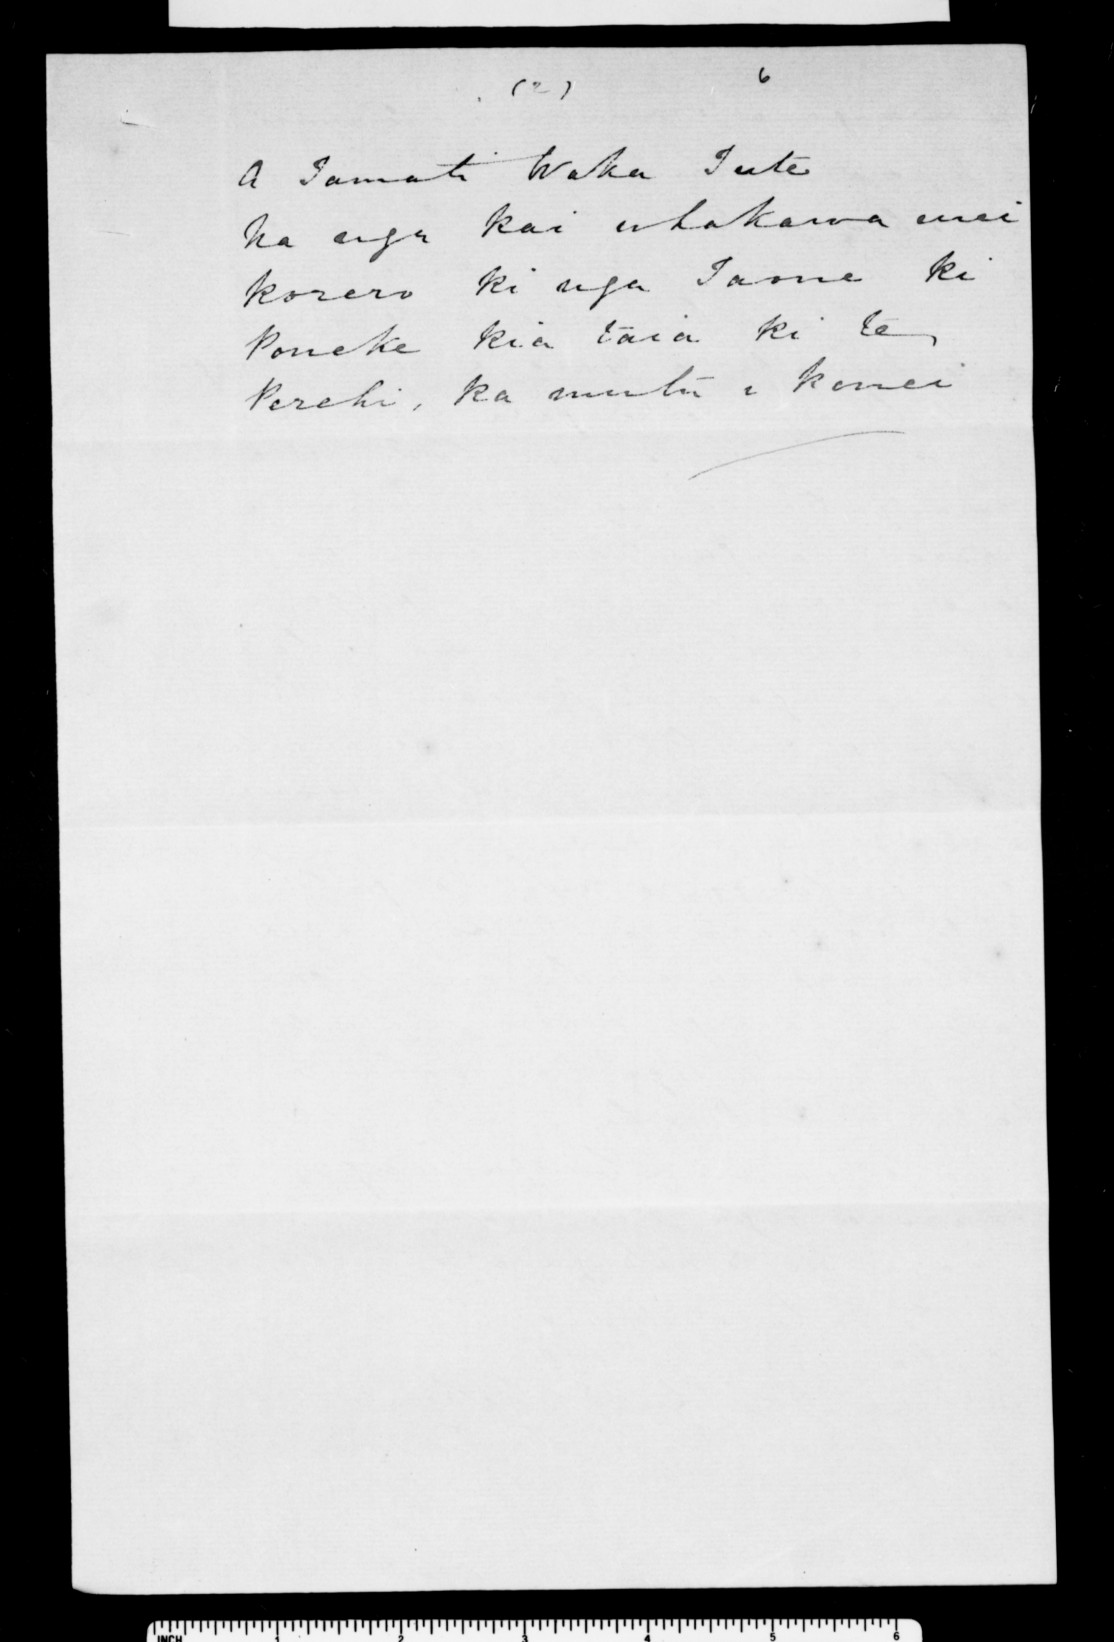 (2) 6
A Tamati Waka Tute
Na nga kai whakawa enei
korero ki nga Taone ki
Poneke kia taia ki te
Perehi, ka mutu i konei
INCH 1 2 3 4 5 6